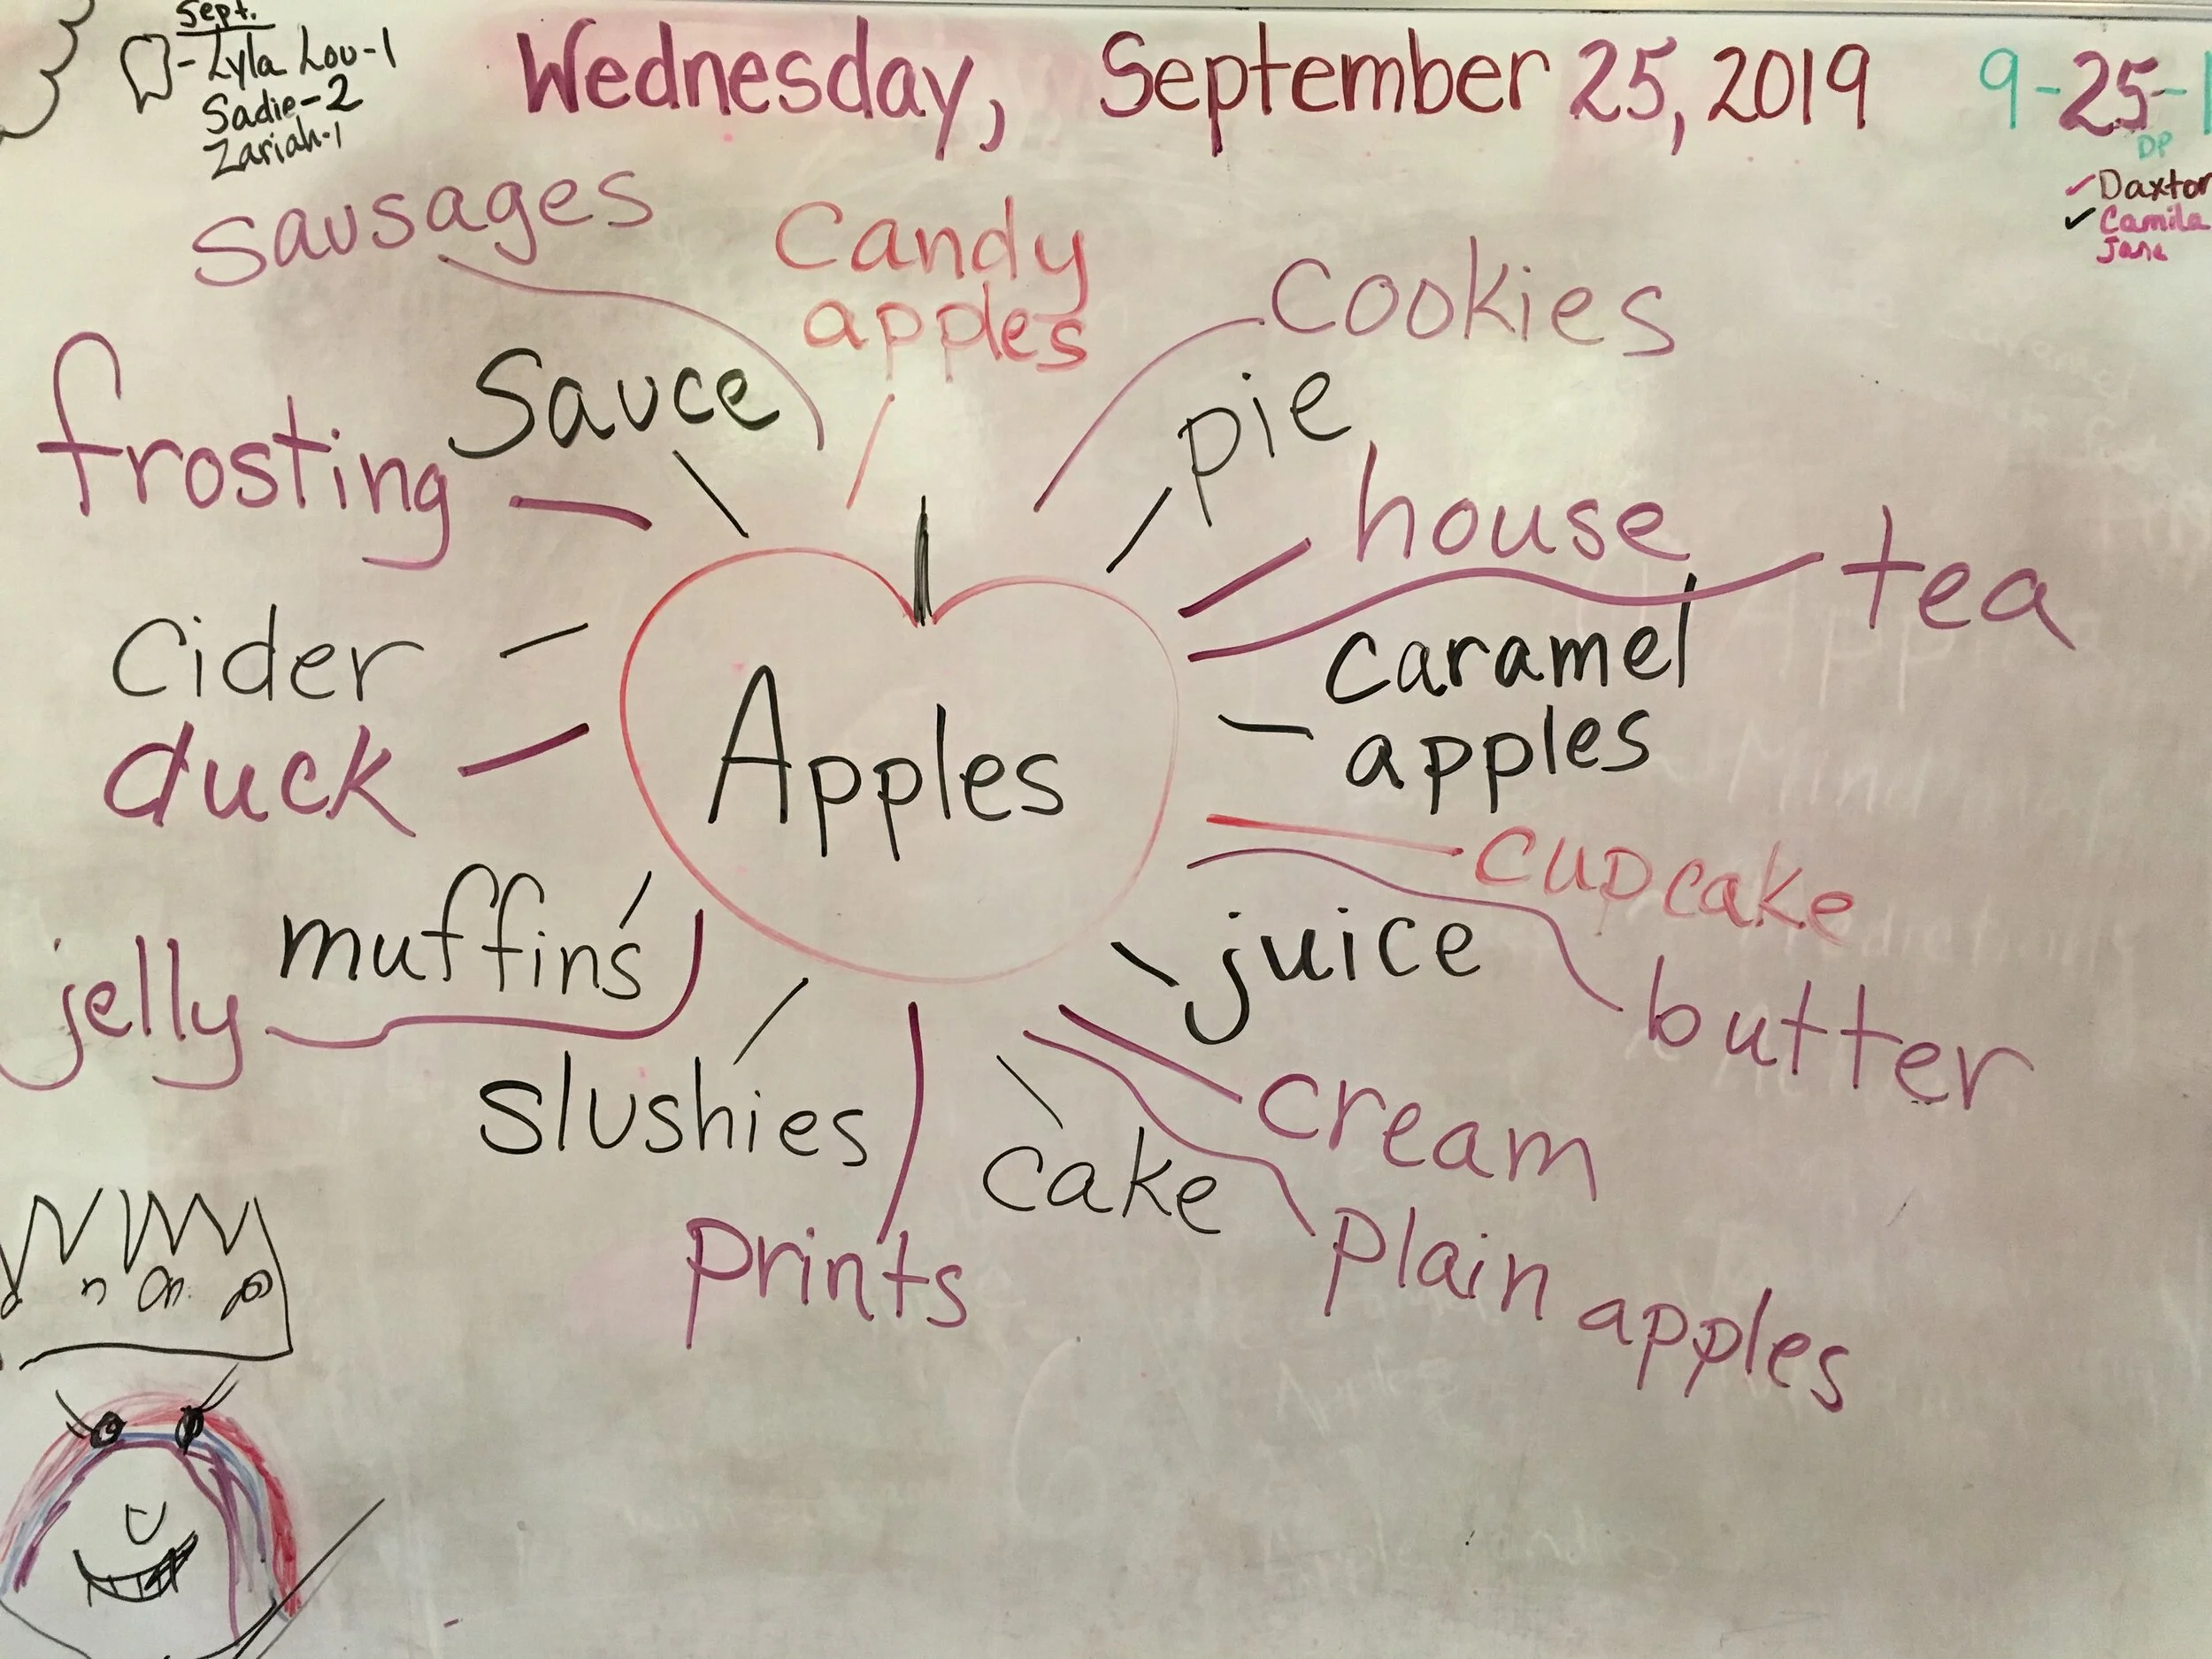 Sept.
-Lyla Lou-1
Sadie-2
Zariah-1
Wednesday, September 25, 2019
9-25-1
DP
Daxton
Camila
Jane
sausages
Candy
apples
cookies
frosting
Sauce
pie
house
tea
Cider
caramel
apples
Apples
duck
cupcake
muffins
juice
jelly
butter
slushies
cream
cake
prints
plain apples